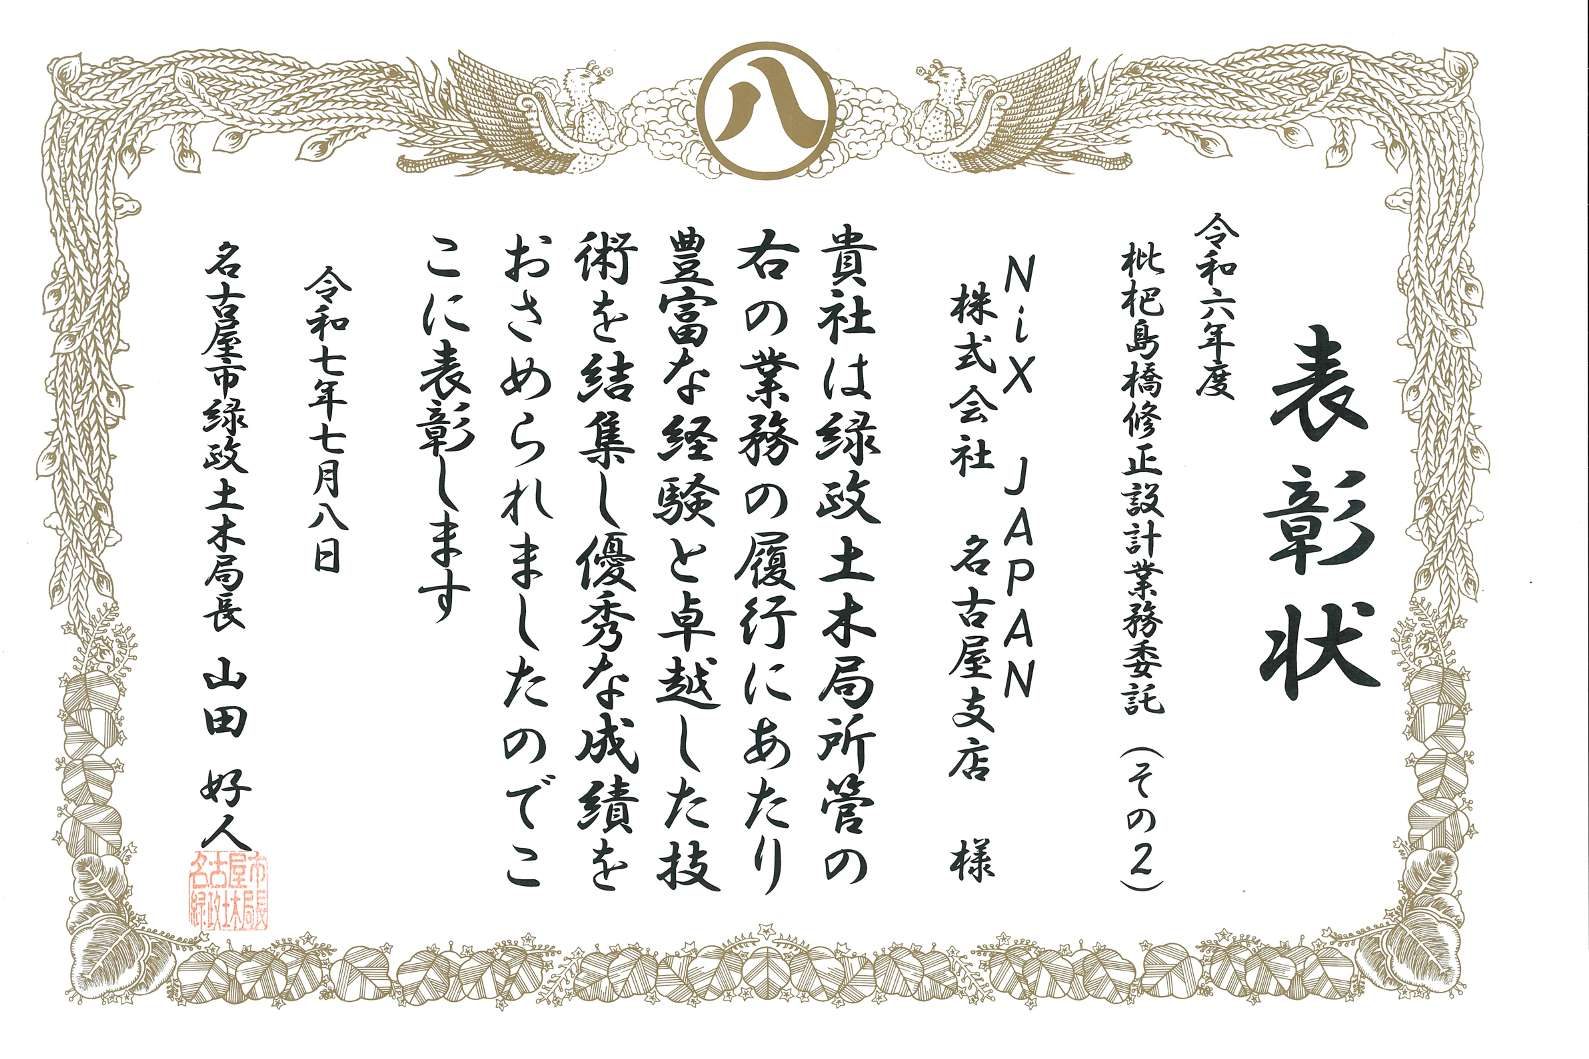 八
表彰状
令和六年度
枇杷島橋修正設計業務委託（その２）
NiX JAPAN
株式会社 名古屋支店 様
貴社は緑政土木局所管の
右の業務の履行にあたり
豊富な経験と卓越した技
術を結集し優秀な成績を
おさめられましたのでこ
こに表彰します
令和七年七月八日
名古屋市緑政土木局長 山田 好人
名古屋市
緑政土木局長